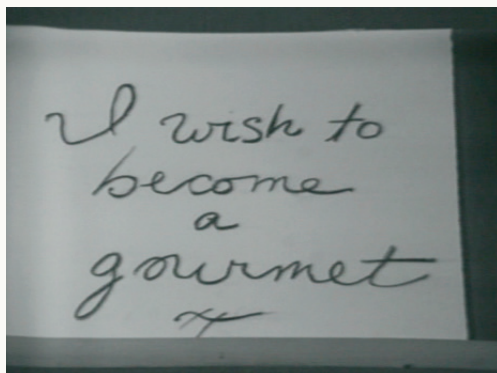 I wish to
become
a
gourmet